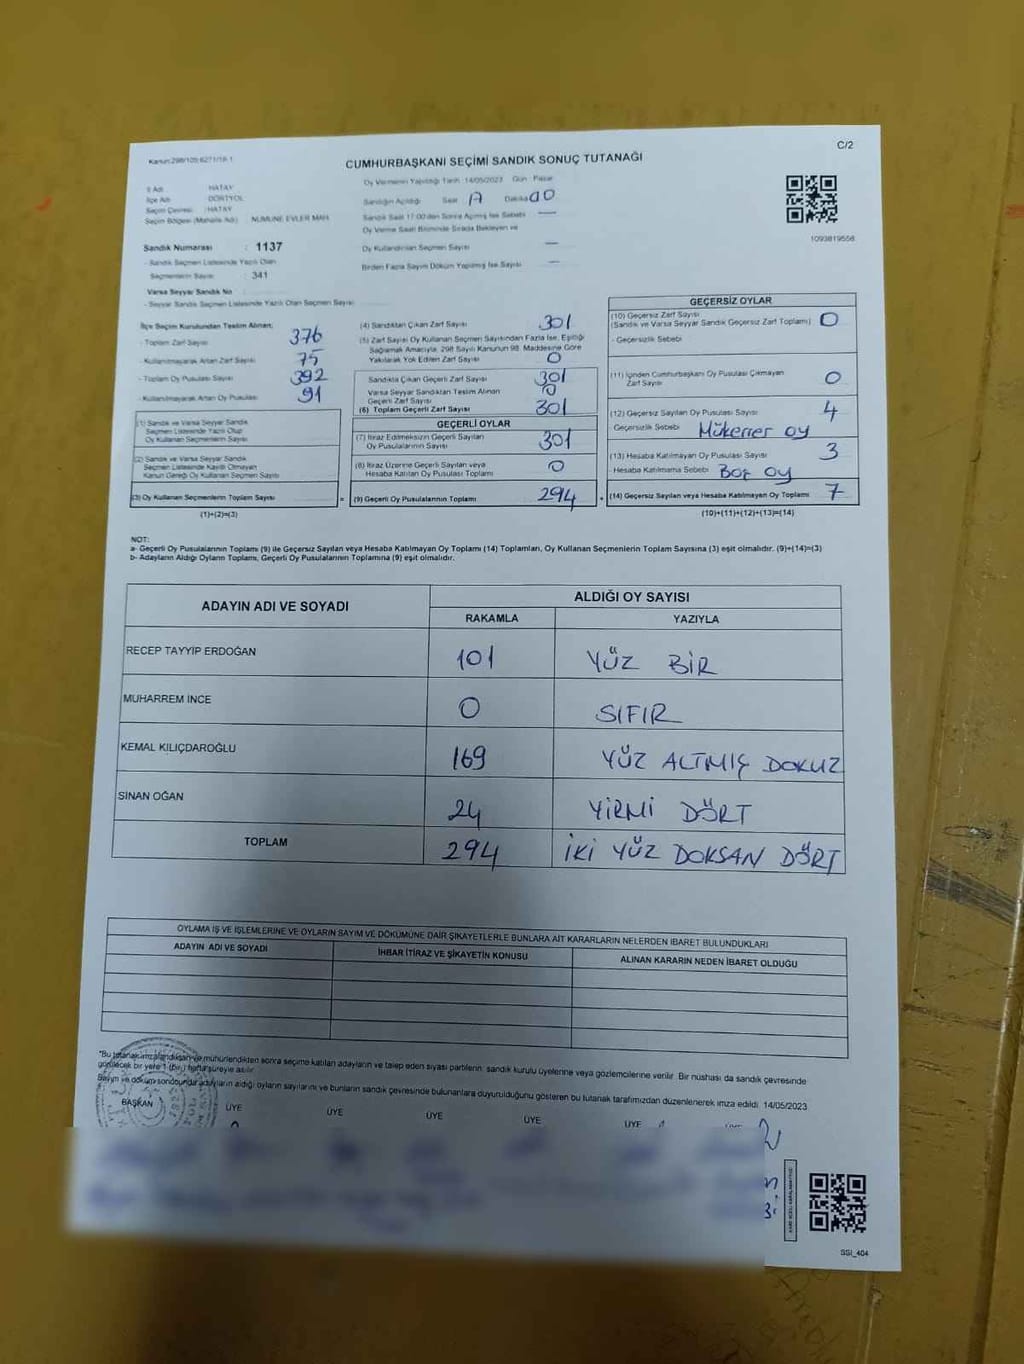 C/2
Kanun:298/105;6271/18-1
CUMHURBAŞKANI SEÇİMİ SANDIK SONUÇ TUTANAĞI
İl Adı : HATAY
İlçe Adı : DÖRTYOL
Seçim Çevresi : HATAY
Seçim Bölgesi (Mahalle Adı) : NUMUNE EVLER MAH.
Sandık Numarası : 1137
- Sandık Seçmen Listesinde Yazılı Olan
Seçmenlerin Sayısı : 341
Varsa Seyyar Sandık No
- Seyyar Sandık Seçmen Listesinde Yazılı Olan Seçmen Sayısı
Oy Vermenin Yapıldığı Tarih :14/05/2023 Gün : Pazar
Sandığın Açıldığı Saat Dakika 00
Sandık Saat 17:00'den Sonra Açılmış İse Sebebi —
Oy Verme Saati Bitiminde Sırada Bekleyen ve
Oy Kullandırılan Seçmen Sayısı —
Birden Fazla Sayım Döküm Yapılmış İse Sayısı —
1093819558
İlçe Seçim Kurulundan Teslim Alınan;
- Toplam Zarf Sayısı 376
- Kullanılmayarak Artan Zarf Sayısı 75
- Toplam Oy Pusulası Sayısı 392
- Kullanılmayarak Artan Oy Pusulası 91
(1) Sandık ve Varsa Seyyar Sandık
Seçmen Listesinde Yazılı Olup
Oy Kullanan Seçmenlerin Sayısı
(2) Sandık ve Varsa Seyyar Sandık
Seçmen Listesinde Kayıtlı Olmayan
Kanun Gereği Oy Kullanan Seçmen Sayısı
(3) Oy Kullanan Seçmenlerin Toplam Sayısı =
(1)+(2)=(3)
(4) Sandıktan Çıkan Zarf Sayısı 301
(5) Zarf Sayısı Oy Kullanan Seçmen Sayısından Fazla İse, Eşitliği
Sağlamak Amacıyla, 298 Sayılı Kanunun 98. Maddesine Göre
Yakılarak Yok Edilen Zarf Sayısı 0
Sandıkta Çıkan Geçerli Zarf Sayısı 301
Varsa Seyyar Sandıktan Teslim Alınan
Geçerli Zarf Sayısı 0
(6) Toplam Geçerli Zarf Sayısı 301
GEÇERLİ OYLAR
(7) İtiraz Edilmeksizin Geçerli Sayılan
Oy Pusulalarının Sayısı 301
(8) İtiraz Üzerine Geçerli Sayılan veya
Hesaba Katılan Oy Pusulası Toplamı 0
(9) Geçerli Oy Pusulalarının Toplamı 294 +
GEÇERSİZ OYLAR
(10) Geçersiz Zarf Sayısı
(Sandık ve Varsa Seyyar Sandık Geçersiz Zarf Toplamı) 0
- Geçersizlik Sebebi
(11) İçinden Cumhurbaşkanı Oy Pusulası Çıkmayan
Zarf Sayısı 0
(12) Geçersiz Sayılan Oy Pusulası Sayısı 4
Geçersizlik Sebebi Mükerrer oy
(13) Hesaba Katılmayan Oy Pusulası Sayısı 3
- Hesaba Katılmama Sebebi Boş oy
(14) Geçersiz Sayılan veya Hesaba Katılmayan Oy Toplamı 7
(10)+(11)+(12)+(13)=(14)
NOT:
a- Geçerli Oy Pusulalarının Toplamı (9) ile Geçersiz Sayılan veya Hesaba Katılmayan Oy Toplamı (14) Toplamları, Oy Kullanan Seçmenlerin Toplam Sayısına (3) eşit olmalıdır. (9)+(14)=(3)
b- Adayların Aldığı Oyların Toplamı, Geçerli Oy Pusulalarının Toplamına (9) eşit olmalıdır.
ADAYIN ADI VE SOYADI
ALDIĞI OY SAYISI
RAKAMLA YAZIYLA
RECEP TAYYİP ERDOĞAN 101 YÜZ BİR
MUHARREM İNCE 0 SIFIR
KEMAL KILIÇDAROĞLU 169 YÜZ ALTMIŞ DOKUZ
SİNAN OĞAN 24 YİRMİ DÖRT
TOPLAM 294 İKİ YÜZ DOKSAN DÖRT
OYLAMA İŞ VE İŞLEMLERİNE VE OYLARIN SAYIM VE DÖKÜMÜNE DAİR ŞİKAYETLERLE BUNLARA AİT KARARLARIN NELERDEN İBARET BULUNDUKLARI
ADAYIN ADI VE SOYADI İHBAR İTİRAZ VE ŞİKAYETİN KONUSU ALINAN KARARIN NEDEN İBARET OLDUĞU
*Bu tutanak imzalandıktan ve mühürlendikten sonra seçime katılan adayların ve talep eden siyasi partilerin, sandık kurulu üyelerine veya gözlemcilerine verilir. Bir nüshası da sandık çevresinde
görülecek bir yere 1 (bir) hafta süreyle asılır.
Sayım ve döküm sonucunda adayların aldığı oyların sayılarını ve bunların sandık çevresinde bulunanlara duyurulduğunu gösteren bu tutanak tarafımızdan düzenlenerek imza edildi. 14/05/2023
BAŞKAN ÜYE ÜYE ÜYE ÜYE ÜYE
SSI_404